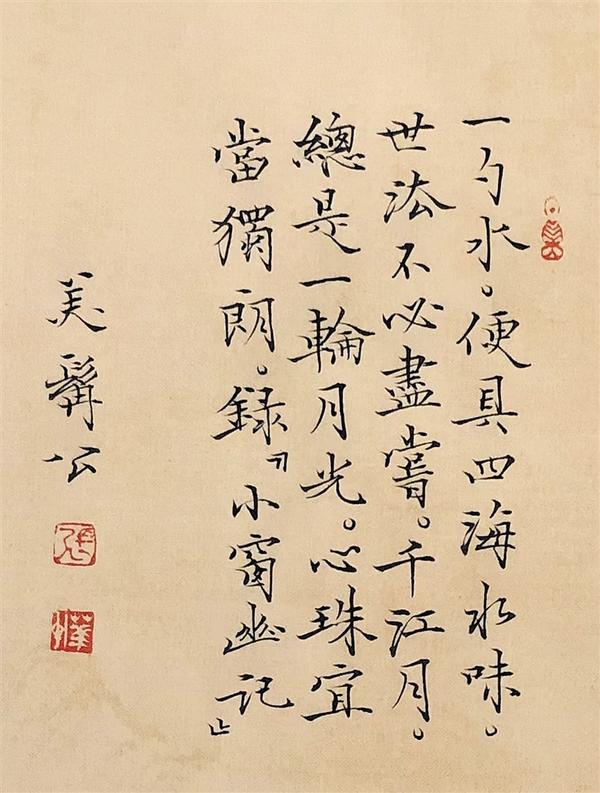 一勺水。便具四海水味。
世法不必盡嘗。千江月。
總是一輪月光。心珠宜
當獨朗。錄『小窗幽記』
美髯公